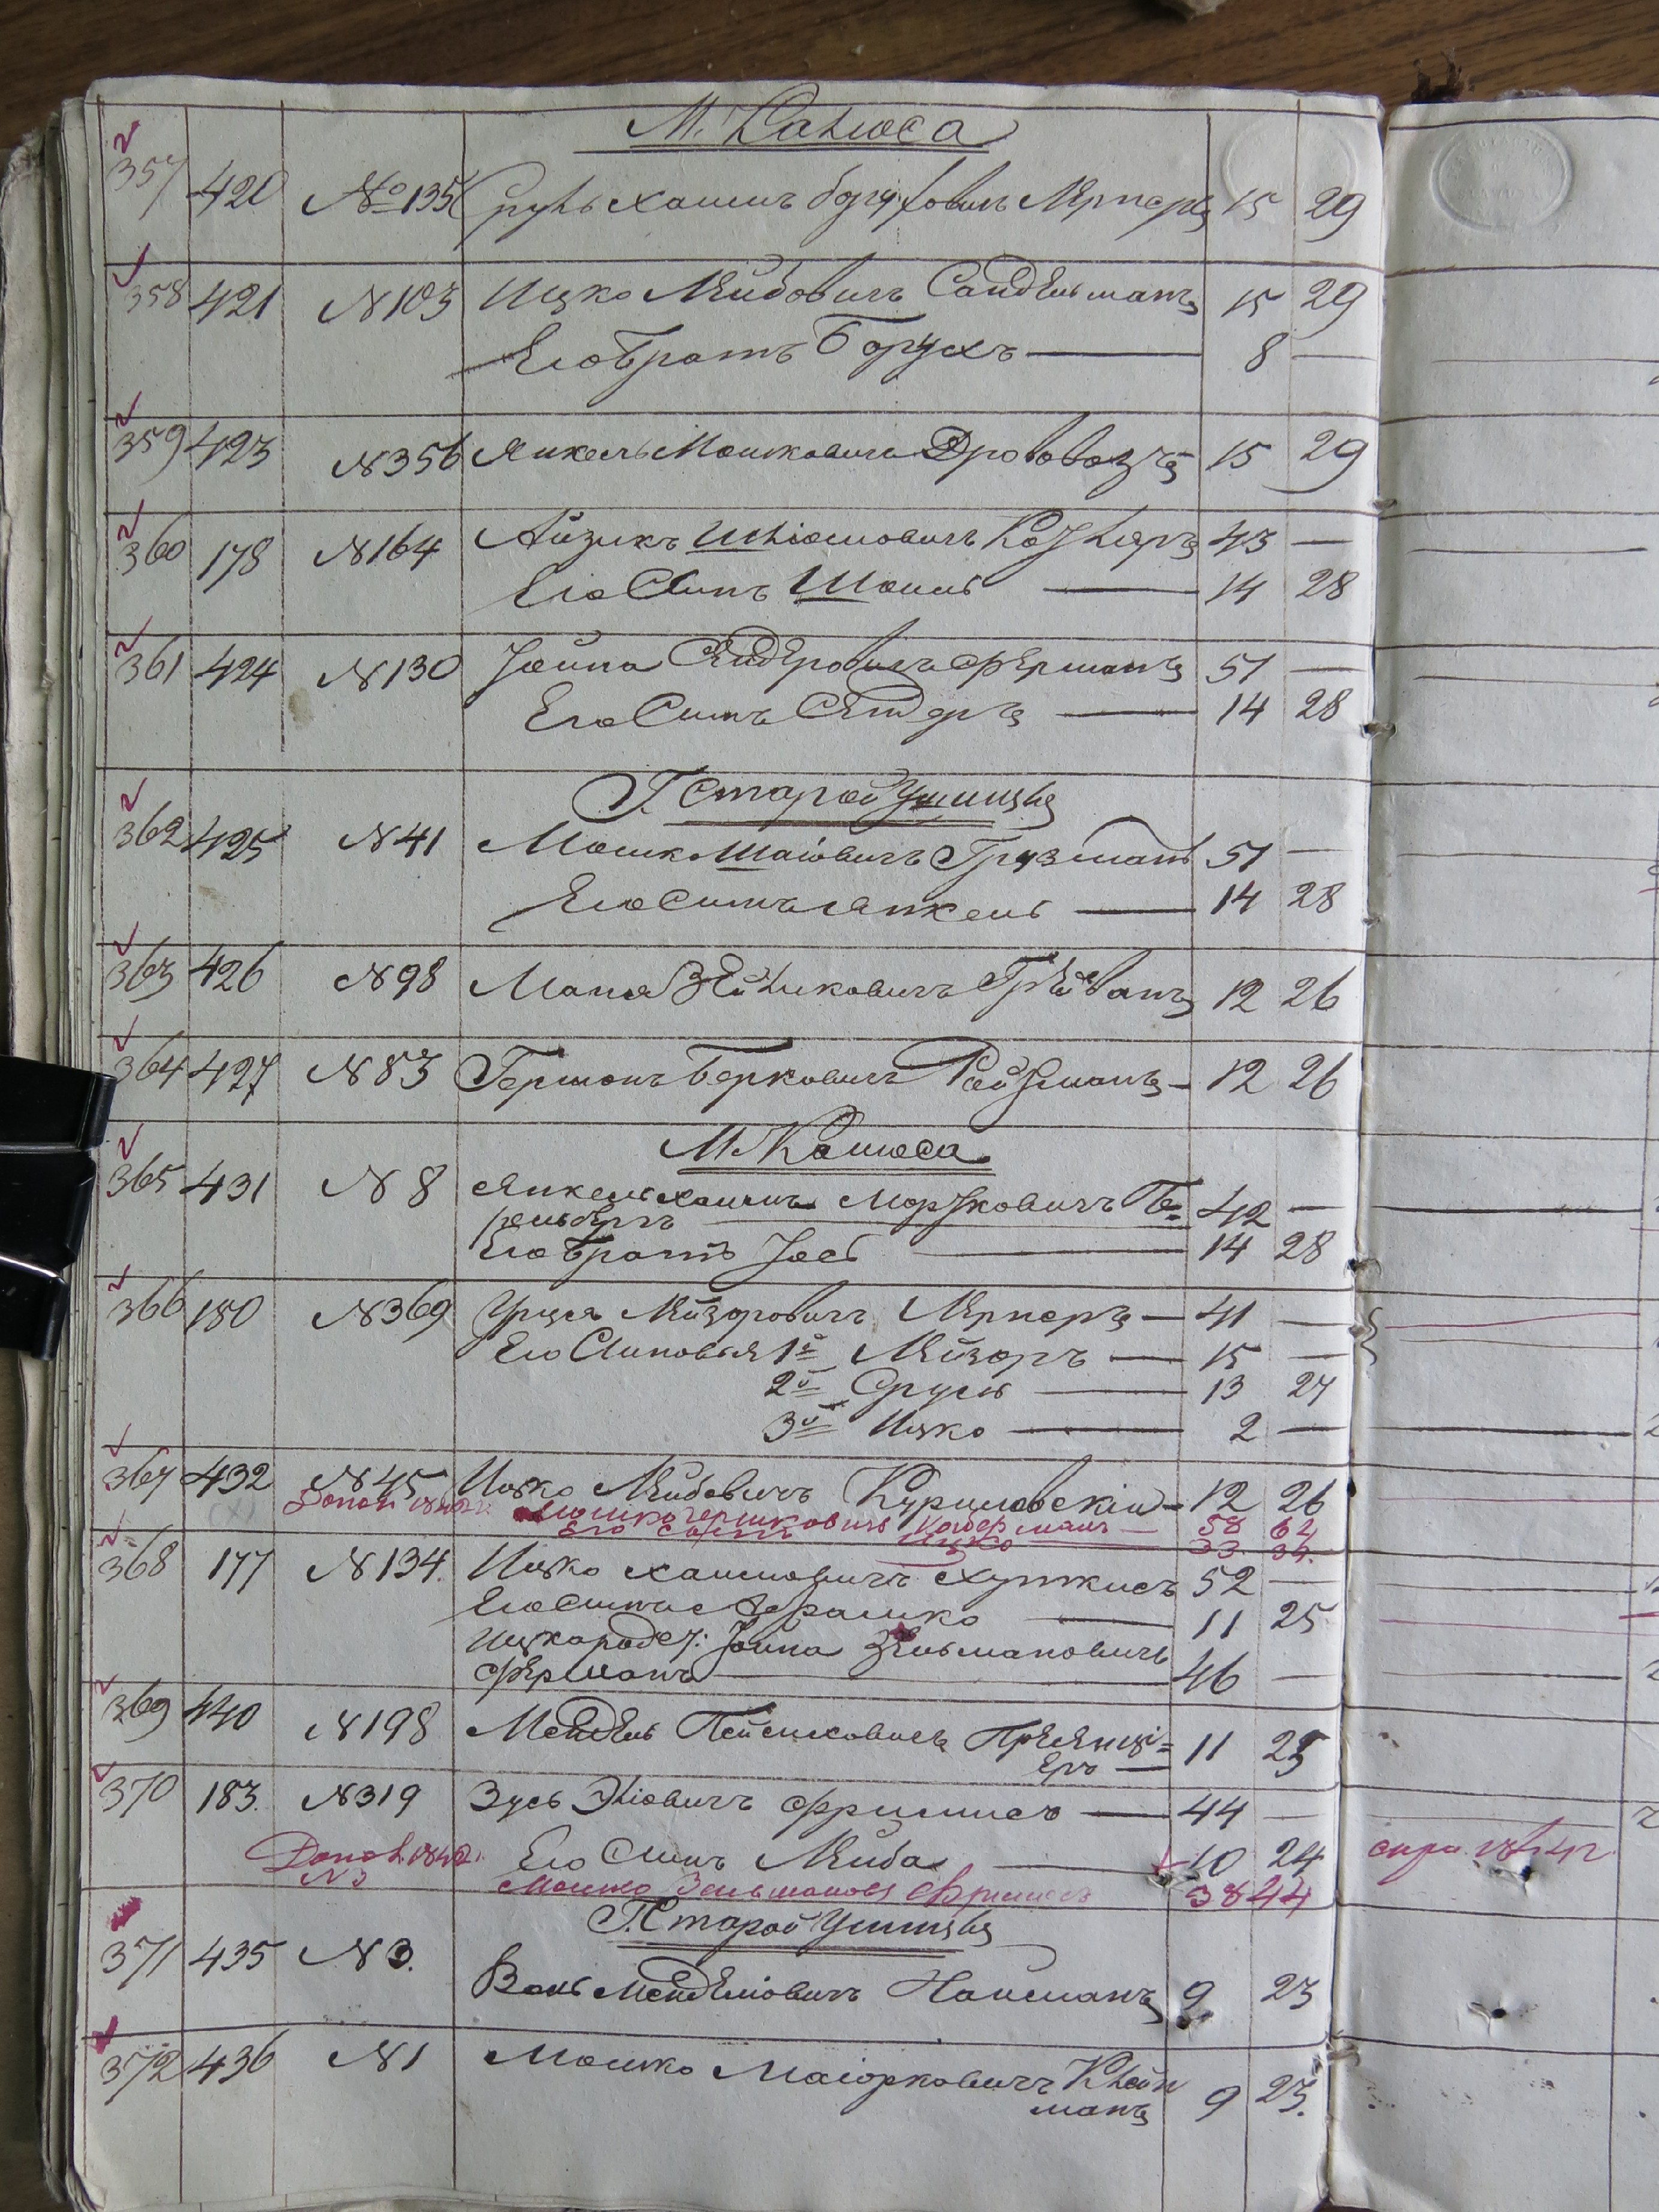 М. Калюса
357 420 №135 Сруль Хаимъ Боруховичъ Лернеръ 15 29
358 421 N103 Ицко Лейбовичъ Сандельманъ 15 29
Его братъ Борухъ — 8 —
359 423 N356 Янкель Мошковичъ Дрововозъ 15 29
360 178 N164 Айзикъ Шліомовичъ Козляръ 43 —
Его Сынъ Шоилъ — 14 28
361 424 N130 Іойна Сендеровичъ Ферманъ 51 —
Его Сынъ Сендеръ — 14 28
Г. Старой Ушицы
362 425 N41 Мошко Шаіовичъ Грузманъ 51 —
Его Сынъ Янкель — 14 28
363 426 N98 Маня Зейликовичъ 12 26
364 427 N83 Гершонъ Берковичъ Ройзманъ — 12 26
М. Калюса
365 431 N8 Янкель Хаимъ Морзковичъ Ге=
ренбергъ — 42 —
Его братъ Іось — 14 28
366 180 N369 Урця Лейзоровичъ Лернеръ — 41 —
Его Сыновья 1й Лейзоръ — 15 —
2й Сруль — 13 27
3й Ицко — 2 —
367 432 N45 Ицко Лейбовичъ Куриловскій — 12 26
Допол. 1842 Мошко Гершковичъ — 58 62
Его Сынъ Ицко — 33 36.
368 177 N134. Ицко Хаимовичъ Хуткисъ 52 —
Его Сынъ Аврашко — 11 25
Ицка Іойна Зельмановичъ
Ферманъ — 46 —
369 440 N198 Мендель Пейсиховичъ Пресенці=
еръ — 11 25
370 183. N319 Зусь Эліовичъ Фришисъ — 44 —
Его Сынъ Лейба — 10 24
Допол. 1842. N3 Мошко Зельмановъ Фришисъ 38 44
Г. Старой Ушицы
371 435 N3. Волъ Менделіовичъ Наисманъ 9 23
372 436 N1 Мошко Маіорковичъ Клейн
манъ 9 23.